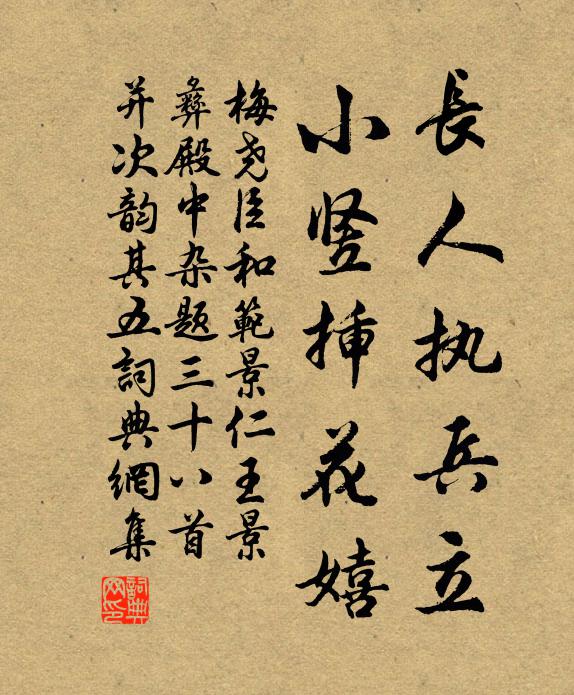 長人执兵立
小竖挿花嬉
梅尧臣和範景仁王景
彝殿中杂题三十八首
并次韵其五詞典網集